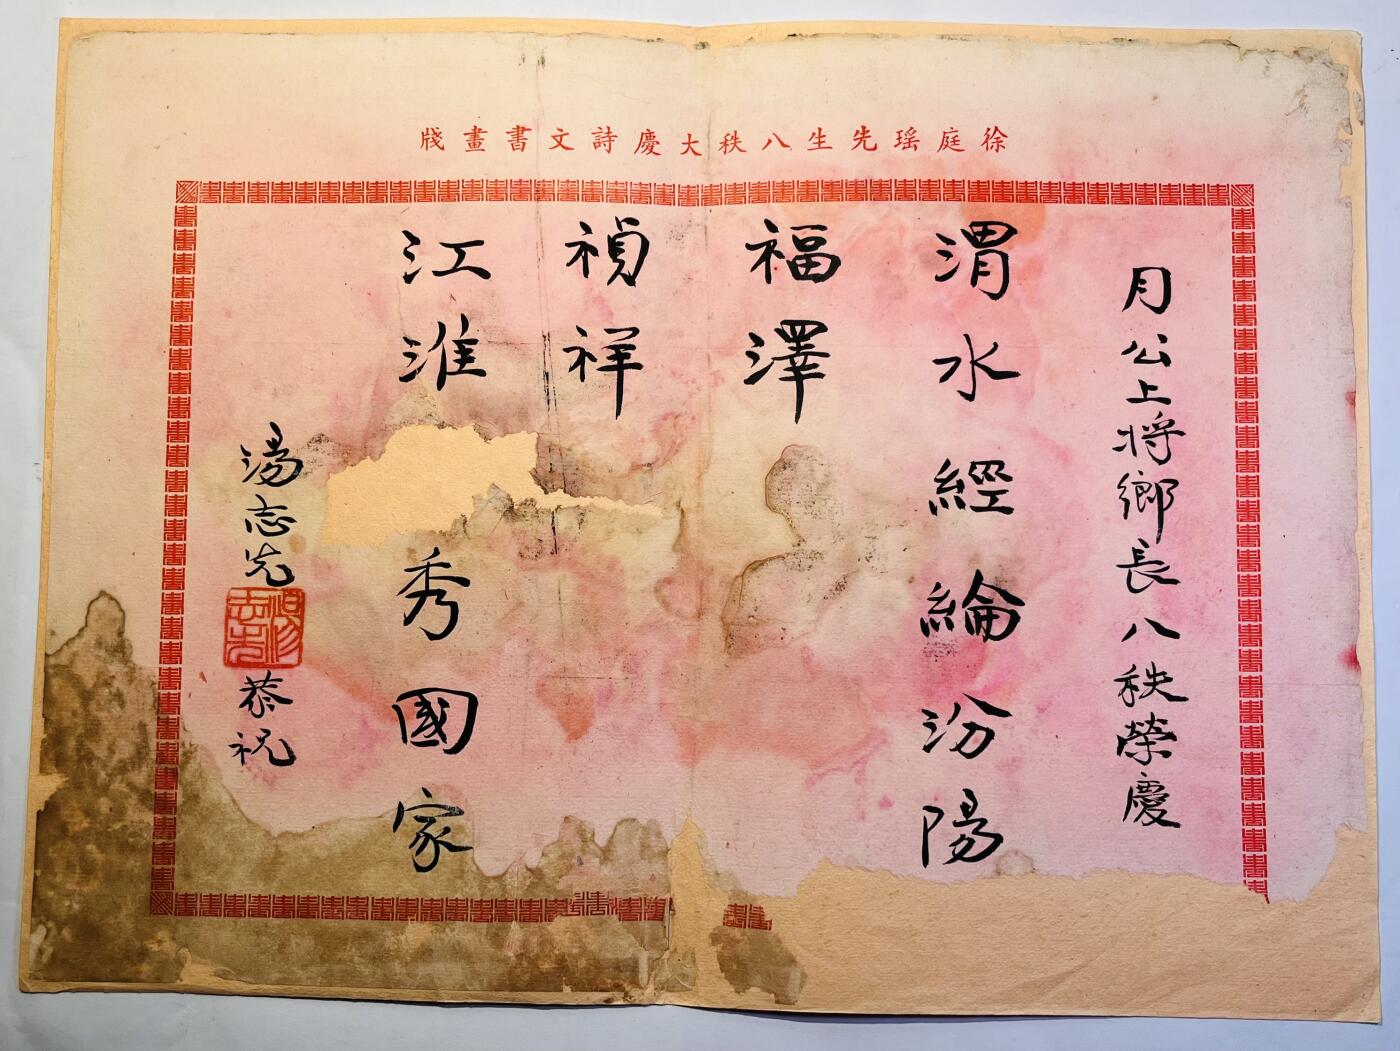 徐庭瑤先生八秩大慶詩文書畫牋
月公上將鄉長八秩榮慶
渭水經綸汾陽
福澤
禎祥
江淮秀國家
湯志先恭祝